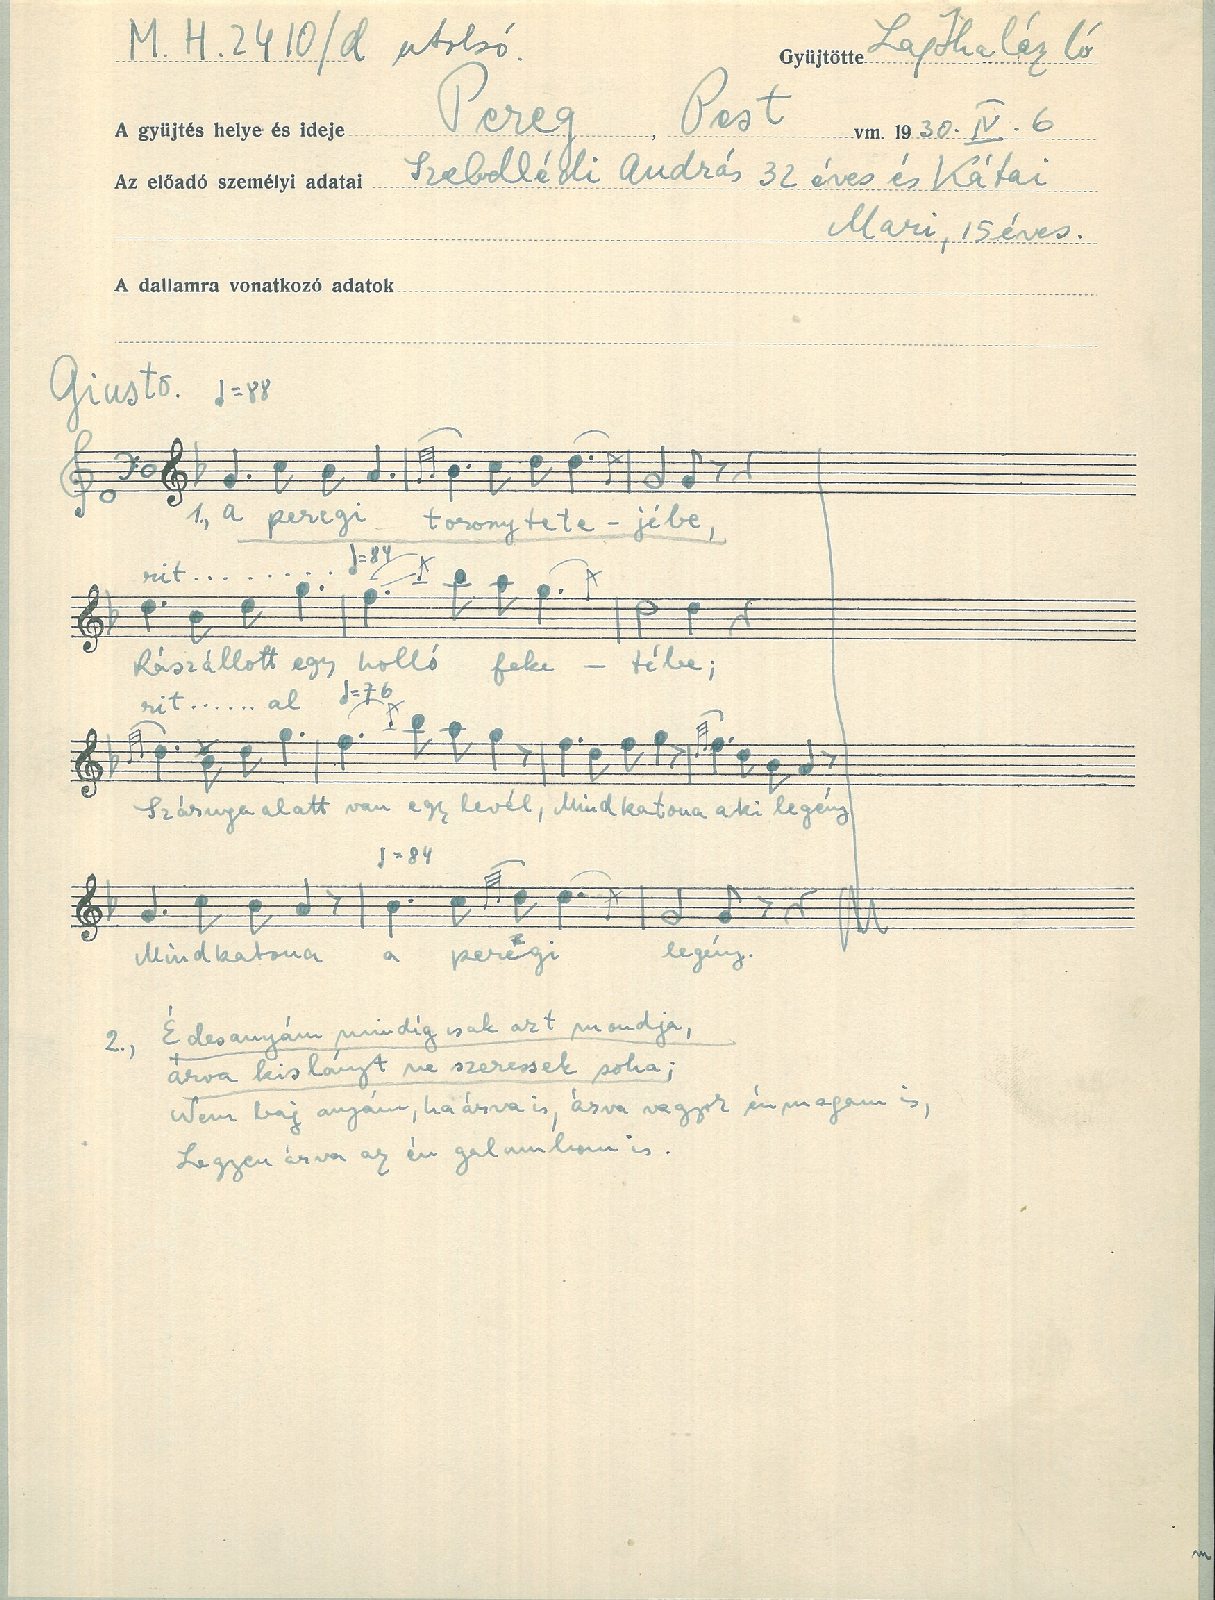 M. H. 2410/d utolsó.
Gyüjtötte Lajtha László
A gyüjtés helye és ideje Pereg, Pest vm. 1930. IV. 6
Az előadó személyi adatai Szebellédi András 32 éves és Kátai
Mari, 15 éves.
A dallamra vonatkozó adatok
Giusto. ♩=88
1., A peregi toronytete - jébe,
rit......... ♩=84
Rászállott egy holló feke - tébe;
rit...... al ♩=76
Szárnya alatt van egy levél, Mindkatona aki legény
♩=84
Mindkatona a peregi legény.
2., Édesanyám mindíg csak azt mondja,
árva kislányt ne szeressek soha;
Nem baj anyám, ha árva is, árva vagyok én magam is,
Legyen árva az én galambom is.